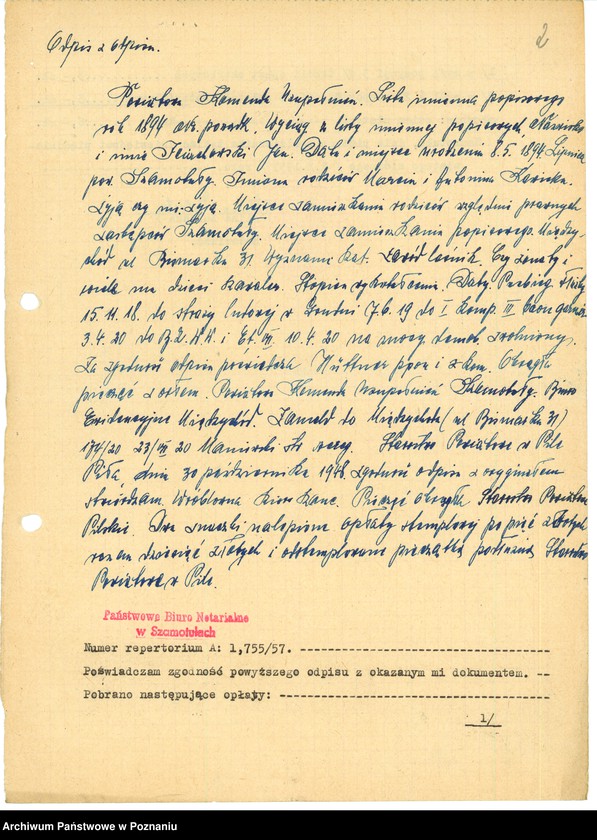 Odpis z odpisu.
2
Powiatowa Komenda Uzupełnień. Lista imienna popisowego
rok 1894 Nr. porządk. Wyciąg z listy imiennej popisowych Nazwisko
i imię Jan. Data i miejsce urodzenia 8.5.1894 Lipnica
pow. Szamotuły. Imiona rodziców Marcin i Antonina
żyją czy nie: żyją. Miejsce zamieszkania rodziców względnie prawnych
zastępców Szamotuły. Miejsce zamieszkania popisowego Między-
chód ul Bismarka 31. Wyznanie kat. zawód leśnik. Czy żonaty i
wiele ma dzieci kawaler. Stopień wykształcenia. Daty. Przebieg służby
15.11.18. do straży ludowej w 7.6.19 do I Komp. III baon
3.4.20 do i Et. VII 10.4.20 na mocy zwolniony.
Za zgodność odpisu poświadcza Hüttner ppor i Okrągła
pieczęć z orłem. Powiatowa Komenda Uzupełnień Szamotuły. Biuro
Ewidencyjne Międzychód. Zameld do Międzychodu (ul Bismarka 31)
174/20 23/VII 20 Starostwo Powiatowe w Pile
Piła, dnia 30 października 1948. zgodność odpisu z oryginałem
stwierdzam. Kier. Kanc. Pieczęć Okrągła Starostwo Powiatowe
Pilskie. Dwa znaczki nalepione opłaty stemplowej po pięć złotych
razem dziesięć złotych i odstemplowane pieczątką podłużną Starostwo
Powiatowe w Pile.
Państwowe Biuro Notarialne
w Szamotułach
Numer repertorium A: 1,755/57. -----------------------------------
Poświadczam zgodność powyższego odpisu z okazanym mi dokumentem. --
Pobrano następujące opłaty: --------------------------------------
1/
Archiwum Państwowe w Poznaniu